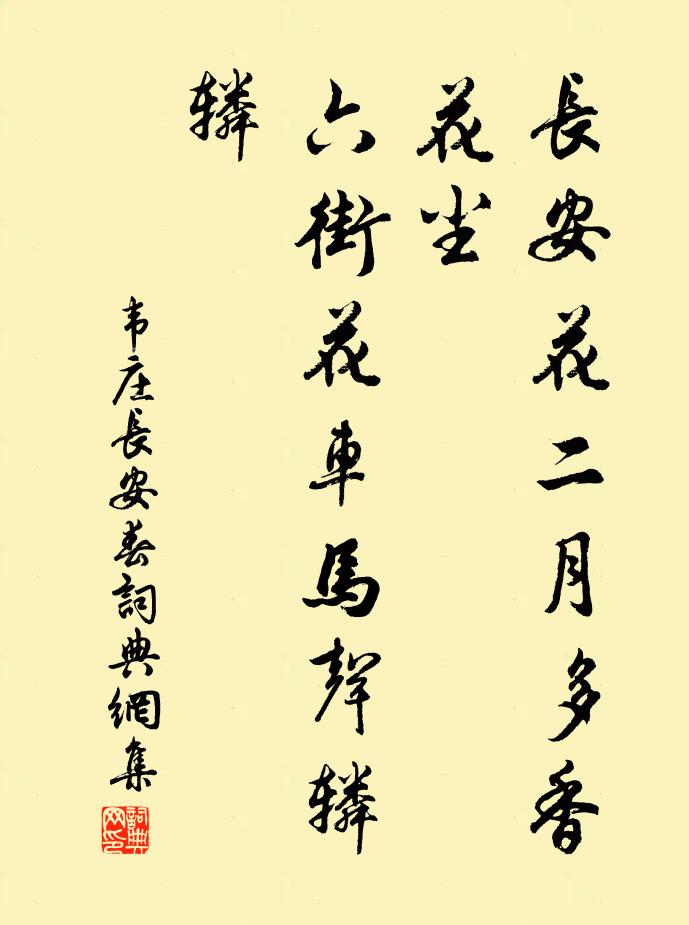 長安花二月多香
花尘
六街花車馬聲轔
轔
韦庄長安春詞典網集
詞典网印